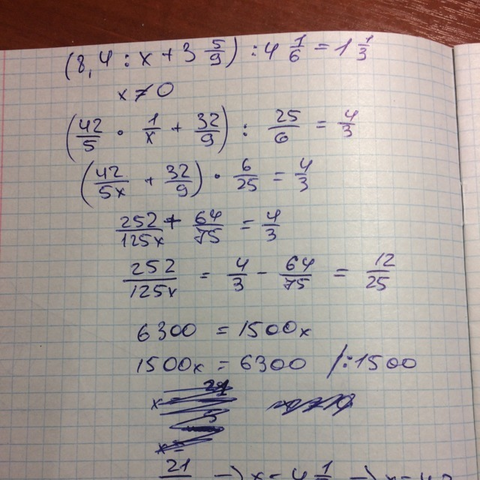 (8,4 : x + 3 5/9) : 4 1/6 = 1 1/3
x ≠ 0
(42/5 · 1/x + 32/9) : 25/6 = 4/3
(42/5x + 32/9) · 6/25 = 4/3
252/125x + 64/75 = 4/3
252/125x = 4/3 - 64/75 = 12/25
6300 = 1500x
1500x = 6300 /:1500
21